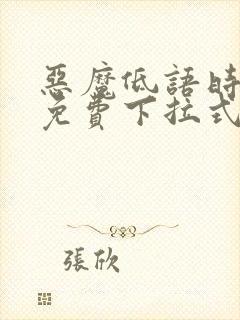 惡魔低語時
免費下拉式
張欣